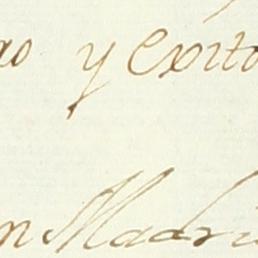 y exito
n Madri